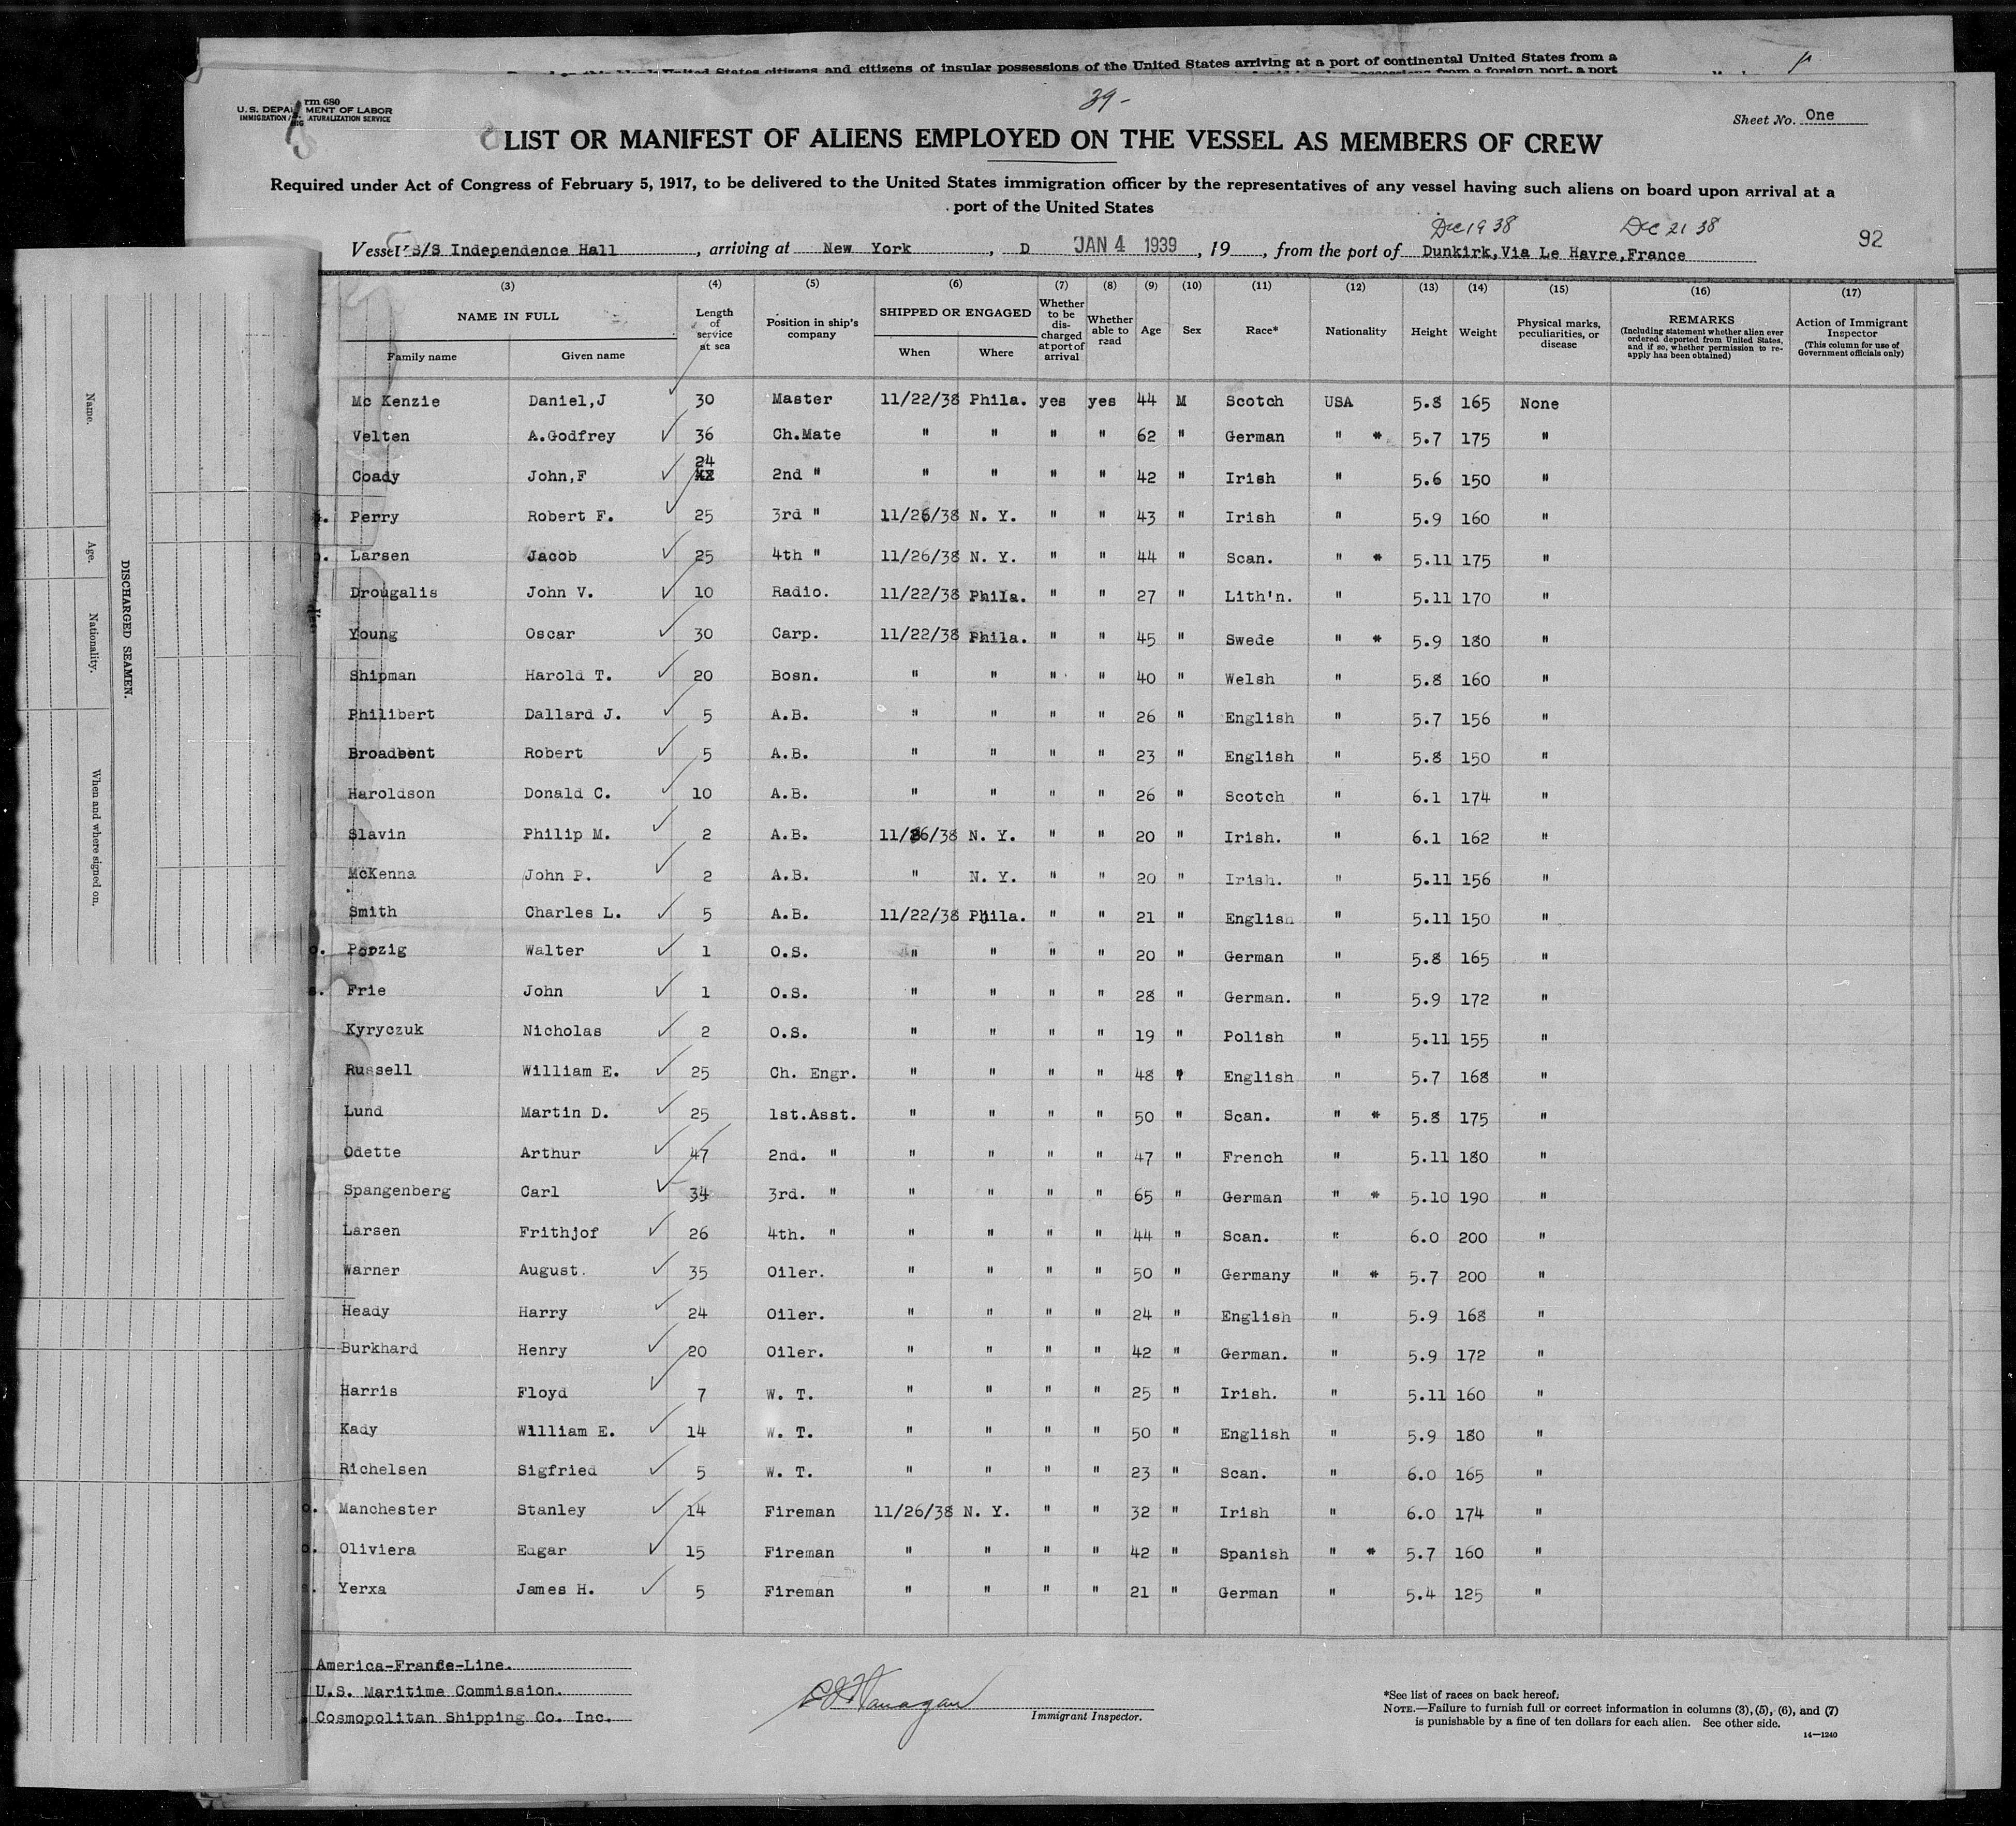 United States citizens and citizens of insular possessions of the United States arriving at a port of continental United States from a
from a foreign port, a port
rm 680
U. S. DEPA MENT OF LABOR
IMMIGRATION ATURALIZATION SERVICE
39-
Sheet No. One
LIST OR MANIFEST OF ALIENS EMPLOYED ON THE VESSEL AS MEMBERS OF CREW
Required under Act of Congress of February 5, 1917, to be delivered to the United States immigration officer by the representatives of any vessel having such aliens on board upon arrival at a
port of the United States
Dec 19 38 Dec 21 38
Vessel S/S Independence Hall, arriving at New York, D JAN 4 1939, 19, from the port of Dunkirk, Via Le Havre, France 92
(3) (4) (5) (6) (7) (8) (9) (10) (11) (12) (13) (14) (15) (16) (17)
NAME IN FULL
Family name Given name
Length of service at sea
Position in ship's company
SHIPPED OR ENGAGED
When Where
Whether to be discharged at port of arrival
Whether able to read
Age Sex Race* Nationality Height Weight
Physical marks, peculiarities, or disease
REMARKS
(Including statement whether alien ever ordered deported from United States, and if so, whether permission to reapply has been obtained)
Action of Immigrant Inspector
(This column for use of Government officials only)
Mc Kenzie Daniel,J 30 Master 11/22/38 Phila. yes yes 44 M Scotch USA 5.8 165 None
Velten A.Godfrey 36 Ch.Mate " " " " 62 " German " * 5.7 175 "
Coady John,F 24 2nd " " " " " 42 " Irish " 5.6 150 "
Perry Robert F. 25 3rd " 11/26/38 N. Y. " " 43 " Irish " 5.9 160 "
Larsen Jacob 25 4th " 11/26/38 N. Y. " " 44 " Scan. " * 5.11 175 "
Drougalis John V. 10 Radio. 11/22/38 Phila. " " 27 " Lith'n. " 5.11 170 "
Young Oscar 30 Carp. 11/22/38 Phila. " " 45 " Swede " * 5.9 180 "
Shipman Harold T. 20 Bosn. " " " " 40 " Welsh " 5.8 160 "
Philibert Dallard J. 5 A.B. " " " " 26 " English " 5.7 156 "
Broadbent Robert 5 A.B. " " " " 23 " English " 5.8 150 "
Haroldson Donald C. 10 A.B. " " " " 26 " Scotch " 6.1 174 "
Slavin Philip M. 2 A.B. 11/26/38 N. Y. " " 20 " Irish. " 6.1 162 "
McKenna John P. 2 A.B. " N. Y. " " 20 " Irish. " 5.11 156 "
Smith Charles L. 5 A.B. 11/22/38 Phila. " " 21 " English " 5.11 150 "
Popzig Walter 1 O.S. " " " " 20 " German " 5.8 165 "
Frie John 1 O.S. " " " " 28 " German. " 5.9 172 "
Kyryczuk Nicholas 2 O.S. " " " " 19 " Polish " 5.11 155 "
Russell William E. 25 Ch. Engr. " " " " 48 " English " 5.7 168 "
Lund Martin D. 25 1st.Asst. " " " " 50 " Scan. " * 5.8 175 "
Odette Arthur 47 2nd. " " " " " 47 " French " 5.11 180 "
Spangenberg Carl 34 3rd. " " " " " 65 " German " * 5.10 190 "
Larsen Frithjof 26 4th. " " " " " 44 " Scan. " 6.0 200 "
Warner August. 35 Oiler. " " " " 50 " Germany " * 5.7 200 "
Heady Harry 24 Oiler. " " " " 24 " English " 5.9 168 "
Burkhard Henry 20 Oiler. " " " " 42 " German. " 5.9 172 "
Harris Floyd 7 W. T. " " " " 25 " Irish. " 5.11 160 "
Kady William E. 14 W. T. " " " " 50 " English " 5.9 180 "
Richelsen Sigfried 5 W. T. " " " " 23 " Scan. " 6.0 165 "
Manchester Stanley 14 Fireman 11/26/38 N. Y. " " 32 " Irish " 6.0 174 "
Oliviera Edgar 15 Fireman " " " " 42 " Spanish " * 5.7 160 "
Yerxa James H. 5 Fireman " " " " 21 " German " 5.4 125 "
America-France-Line.
U.S. Maritime Commission.
Cosmopolitan Shipping Co. Inc.
Immigrant Inspector.
*See list of races on back hereof.
NOTE.—Failure to furnish full or correct information in columns (3), (5), (6), and (7)
is punishable by a fine of ten dollars for each alien. See other side.
14—1240
DISCHARGED SEAMEN.
Name.
Age.
Nationality.
When and where signed on.